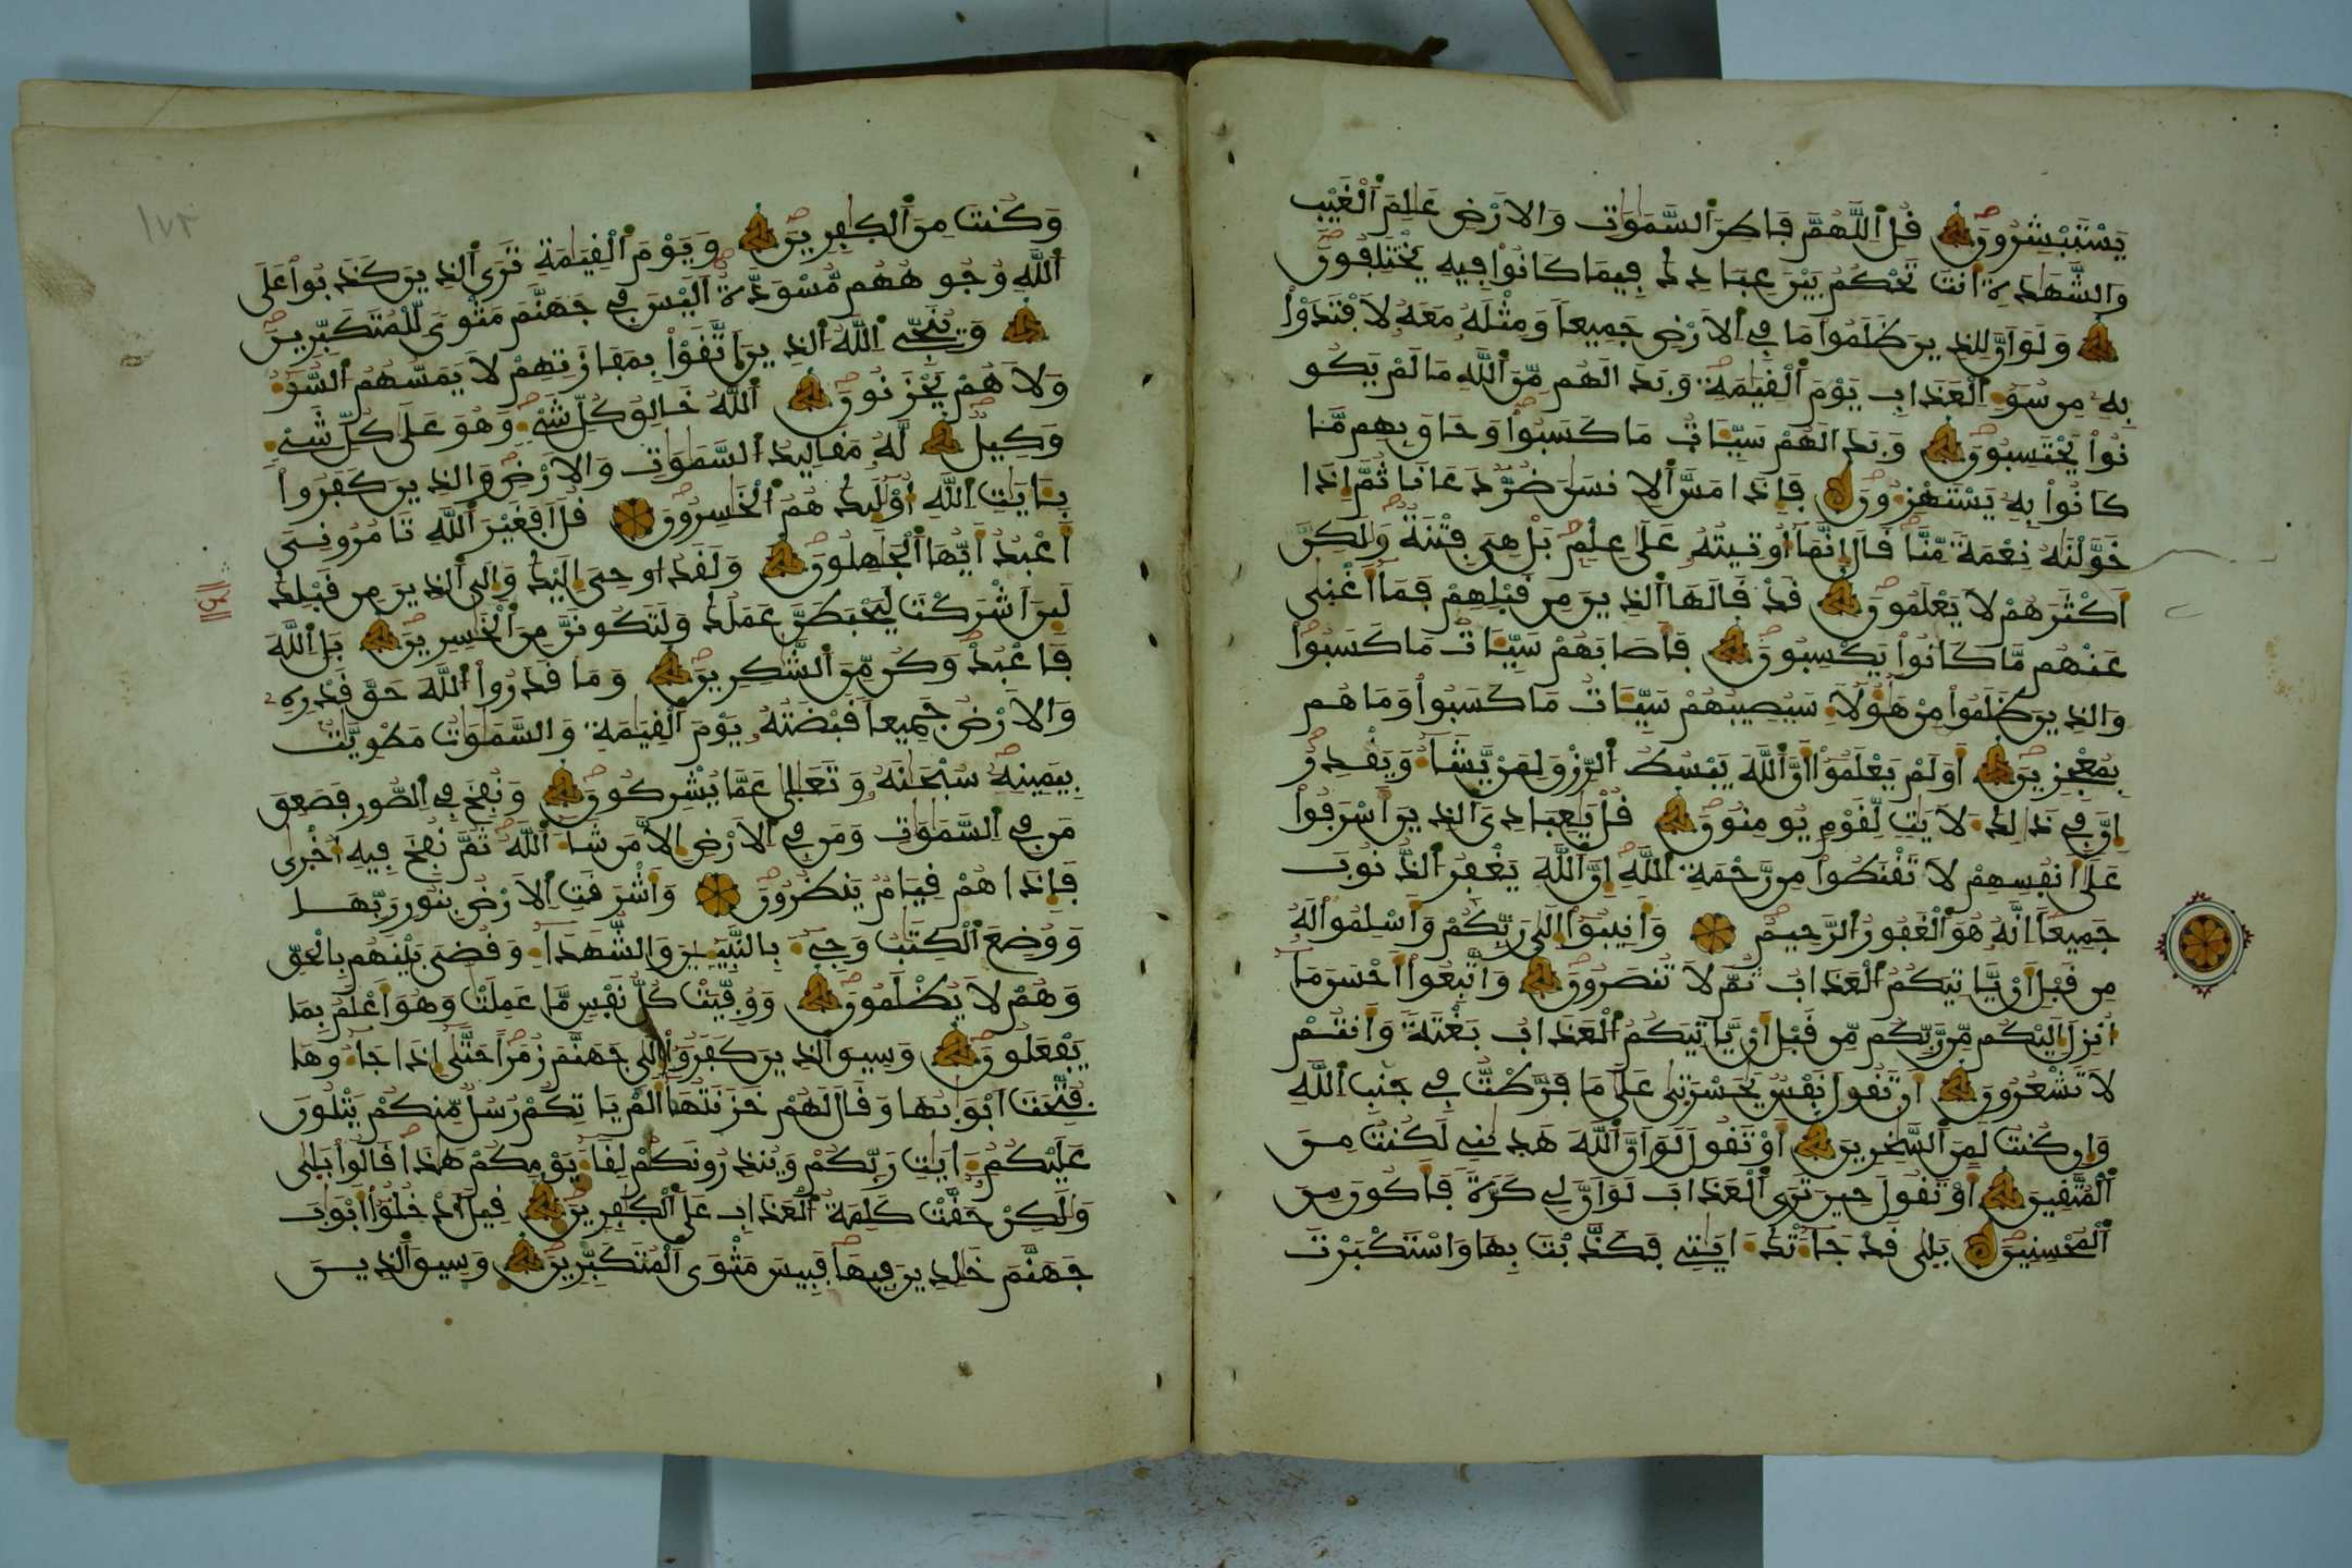 يَسْتَبْشِرُونَ قُلِ اَللَّهُمَّ فَاطِرَ اَلسَّمَٰوَٰتِ وَالَارْضِ عَٰلِمَ اَلْغَيْبِ
وَالشَّهَٰدَةِ أَنتَ تَحْكُمُ بَيْنَ عِبَادِكَ فِيمَا كَانُواْ فِيهِ يَخْتَلِفُونَ
وَلَوَ اَنَّ لِلذِينَ ظَلَمُواْ مَا فِي اِلَارْضِ جَمِيعاً وَمِثْلَهُۥ مَعَهُۥ لَافْتَدَوْاْ
بِهِۦ مِن سُوٓءِ اِلْعَذَابِ يَوْمَ اَلْقِيَٰمَةِ وَبَدَا لَهُم مِّنَ اَللَّهِ مَا لَمْ يَكُو
نُواْ يَحْتَسِبُونَ وَبَدَا لَهُمْ سَيِّـَٔاتُ مَا كَسَبُواْ وَحَاقَ بِهِم مَّا
كَانُواْ بِهِۦ يَسْتَهْزِءُونَ فَإِذَا مَسَّ اَلِانسَٰنَ ضُرٌّ دَعَانَا ثُمَّ إِذَا
خَوَّلْنَٰهُ نِعْمَةً مِّنَّا قَالَ إِنَّمَآ أُوتِيتُهُۥ عَلَىٰ عِلْمٍ بَلْ هِيَ فِتْنَةٌ وَلَٰكِنَّ
أَكْثَرَهُمْ لَا يَعْلَمُونَ قَدْ قَالَهَا اَلذِينَ مِن قَبْلِهِمْ فَمَآ أَغْنَىٰ
عَنْهُم مَّا كَانُواْ يَكْسِبُونَ فَأَصَابَهُمْ سَيِّـَٔاتُ مَا كَسَبُواْ
وَالذِينَ ظَلَمُواْ مِنْ هَٰٓؤُلَآءِ سَيُصِيبُهُمْ سَيِّـَٔاتُ مَا كَسَبُواْ وَمَا هُم
بِمُعْجِزِينَ أَوَلَمْ يَعْلَمُوٓاْ أَنَّ اَللَّهَ يَبْسُطُ اُلرِّزْقَ لِمَنْ يَّشَآءُ وَيَقْدِرُ
إِنَّ فِي ذَٰلِكَ لَأٓيَٰتٍ لِّقَوْمٍ يُومِنُونَ قُلْ يَٰعِبَادِيَ اَلذِينَ أَسْرَفُواْ
عَلَىٰٓ أَنفُسِهِمْ لَا تَقْنَطُواْ مِن رَّحْمَةِ اِللَّهِ إِنَّ اَللَّهَ يَغْفِرُ اُلذُّنُوبَ
جَمِيعاً إِنَّهُۥ هُوَ اَلْغَفُورُ اُلرَّحِيمُ وَأَنِيبُوٓاْ إِلَىٰ رَبِّكُمْ وَأَسْلِمُواْ لَهُۥ
مِن قَبْلِ أَنْ يَّاتِيَكُمُ اُلْعَذَابُ ثُمَّ لَا تُنصَرُونَ وَاتَّبِعُوٓاْ أَحْسَنَ مَآ
أُنزِلَ إِلَيْكُم مِّن رَّبِّكُم مِّن قَبْلِ أَنْ يَّاتِيَكُمُ اُلْعَذَابُ بَغْتَةً وَأَنتُمْ
لَا تَشْعُرُونَ أَن تَقُولَ نَفْسٌ يَٰحَسْرَتَىٰ عَلَىٰ مَا فَرَّطتُّ فِي جَنۢبِ اِللَّهِ
وَإِن كُنتُ لَمِنَ اَلسَّٰخِرِينَ أَوْ تَقُولَ لَوَ اَنَّ اَللَّهَ هَدَىٰنِي لَكُنتُ مِنَ
اَلْمُتَّقِينَ أَوْ تَقُولَ حِينَ تَرَى اَلْعَذَابَ لَوَ اَنَّ لِي كَرَّةً فَأَكُونَ مِنَ
اَلْمُحْسِنِينَ بَلَىٰ قَدْ جَآءَتْكَ ءَايَٰتِي فَكَذَّبْتَ بِهَا وَاسْتَكْبَرْتَ
وَكُنتَ مِنَ اَلْكَٰفِرِينَ وَيَوْمَ اَلْقِيَٰمَةِ تَرَى اَلذِينَ كَذَبُواْ عَلَى
اَللَّهِ وُجُوهُهُم مُّسْوَدَّةٌ أَلَيْسَ فِي جَهَنَّمَ مَثْوىً لِّلْمُتَكَبِّرِينَ
وَيُنَجِّي اِللَّهُ اُلذِينَ اَتَّقَوْاْ بِمَفَازَتِهِمْ لَا يَمَسُّهُمُ اُلسُّوٓءُ
وَلَا هُمْ يَحْزَنُونَ اَللَّهُ خَٰلِقُ كُلِّ شَيْءٍ وَهُوَ عَلَىٰ كُلِّ شَيْءٍ
وَكِيلٌ لَّهُۥ مَقَالِيدُ اُلسَّمَٰوَٰتِ وَالَارْضِ وَالذِينَ كَفَرُواْ
بِـَٔايَٰتِ اِللَّهِ أُوْلَٰٓئِكَ هُمُ اُلْخَٰسِرُونَ قُلَ اَفَغَيْرَ اَللَّهِ تَامُرُونِيَ
أَعْبُدُ أَيُّهَا اَلْجَٰهِلُونَ وَلَقَدُ اوحِيَ إِلَيْكَ وَإِلَى اَلذِينَ مِن قَبْلِكَ
لَئِنَ اَشْرَكْتَ لَيَحْبَطَنَّ عَمَلُكَ وَلَتَكُونَنَّ مِنَ اَلْخَٰسِرِينَ بَلِ اِللَّهَ
فَاعْبُدْ وَكُن مِّنَ اَلشَّٰكِرِينَ وَمَا قَدَرُواْ اُللَّهَ حَقَّ قَدْرِهِۦ
وَالَارْضُ جَمِيعاً قَبْضَتُهُۥ يَوْمَ اَلْقِيَٰمَةِ وَالسَّمَٰوَٰتُ مَطْوِيَّٰتٌۢ
بِيَمِينِهِۦ سُبْحَٰنَهُۥ وَتَعَٰلَىٰ عَمَّا يُشْرِكُونَ وَنُفِخَ فِي اِلصُّورِ فَصَعِقَ
مَن فِي اِلسَّمَٰوَٰتِ وَمَن فِي اِلَارْضِ إِلَّا مَن شَآءَ اَللَّهُ ثُمَّ نُفِخَ فِيهِ أُخْرَىٰ
فَإِذَا هُمْ قِيَامٌ يَنظُرُونَ وَأَشْرَقَتِ اِلَارْضُ بِنُورِ رَبِّهَا
وَوُضِعَ اَلْكِتَٰبُ وَجِيٓءَ بِالنَّبِيٓـِٕينَ وَالشُّهَدَآءِ وَقُضِيَ بَيْنَهُم بِالْحَقِّ
وَهُمْ لَا يُظْلَمُونَ وَوُفِّيَتْ كُلُّ نَفْسٍ مَّا عَمِلَتْ وَهُوَ أَعْلَمُ بِمَا
يَفْعَلُونَ وَسِيقَ اَلذِينَ كَفَرُوٓاْ إِلَىٰ جَهَنَّمَ زُمَراً حَتَّىٰٓ إِذَا جَآءُوهَا
فُتِّحَتَ اَبْوَٰبُهَا وَقَالَ لَهُمْ خَزَنَتُهَآ أَلَمْ يَاتِكُمْ رُسُلٌ مِّنكُمْ يَتْلُونَ
عَلَيْكُمُۥٓ ءَايَٰتِ رَبِّكُمْ وَيُنذِرُونَكُمْ لِقَآءَ يَوْمِكُمْ هَٰذَا قَالُواْ بَلَىٰ
وَلَٰكِنْ حَقَّتْ كَلِمَةُ اُلْعَذَابِ عَلَى اَلْكَٰفِرِينَ قِيلَ اَدْخُلُوٓاْ أَبْوَٰبَ
جَهَنَّمَ خَٰلِدِينَ فِيهَا فَبِيسَ مَثْوَى اَلْمُتَكَبِّرِينَ وَسِيقَ اَلذِينَ
١٧٢